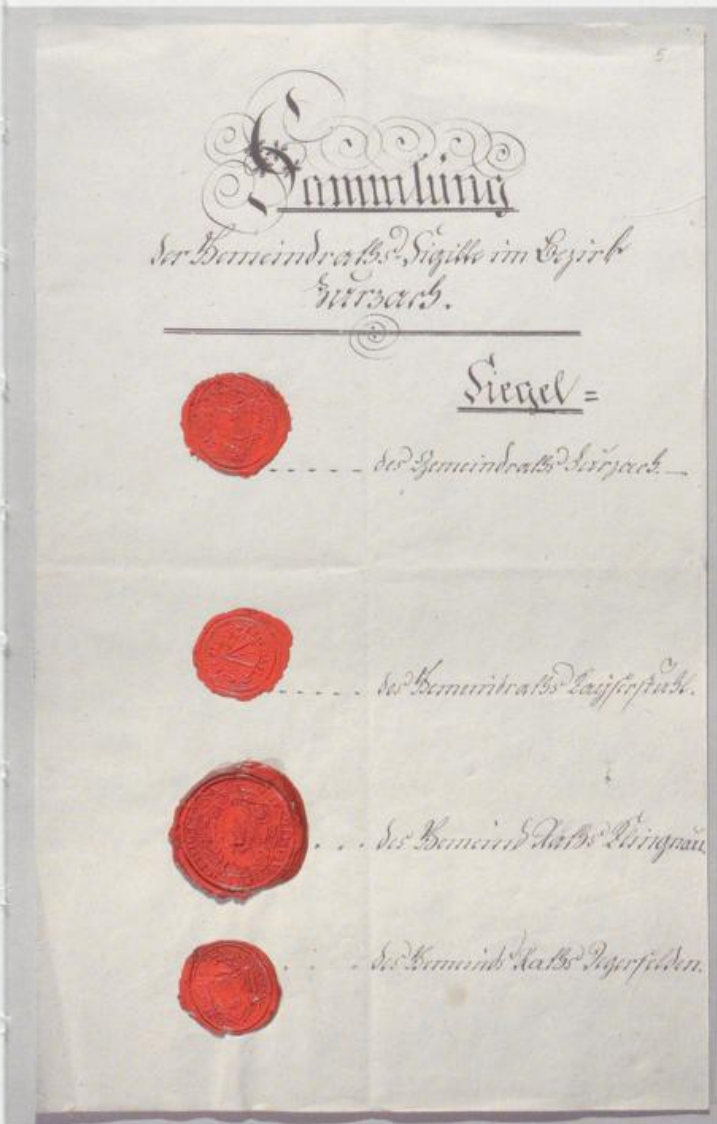 5
Sammlung
der Gemeindraths-Sigille im Bezirk
Zurzach.
Siegel =
des Gemeindraths Zurzach. —
des Gemeindraths Kayserstuhl.
des Gemeind Raths Klingnau
des Gemeinds Raths Degerfelden.